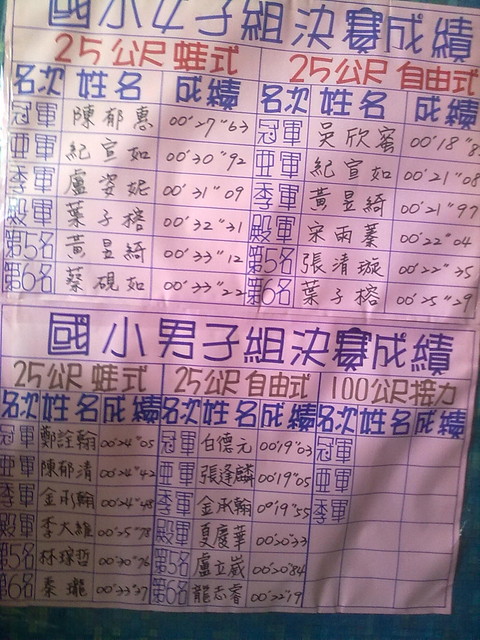 國小女子組決賽成績
25公尺蛙式 25公尺自由式
名次 姓名 成績 名次 姓名 成績
冠軍 陳郁惠 00'27"63 冠軍 吳欣蜜 00'18"8
亞軍 紀宣如 00'30"92 亞軍 紀宣如 00'21"08
季軍 盧姿妮 00'31"09 季軍 黃昱綺 00'21"97
殿軍 葉子榕 00'32"31 殿軍 宋雨蓁 00'22"04
第5名 黃昱綺 00'33"12 第5名 張清璇 00'22"35
第6名 蔡硯如 00'33"22 第6名 葉子榕 00'25"29
國小男子組決賽成績
25公尺蛙式 25公尺自由式 100公尺接力
名次 姓名 成績 名次 姓名 成績 名次 姓名 成績
冠軍 鄭詮翰 00'24"05 冠軍 白德元 00'19"03 冠軍
亞軍 陳郁清 00'24"42 亞軍 張逢麟 00'19"05 亞軍
季軍 金承翰 00'24"48 季軍 金承翰 00'19"55 季軍
殿軍 李大維 00'25"78 殿軍 夏慶華 00'20"33
第5名 林琛哲 00'30"76 第5名 盧立崴 00'20"84
第6名 秦瓏 00'33"37 第6名 龍志睿 00'22"19